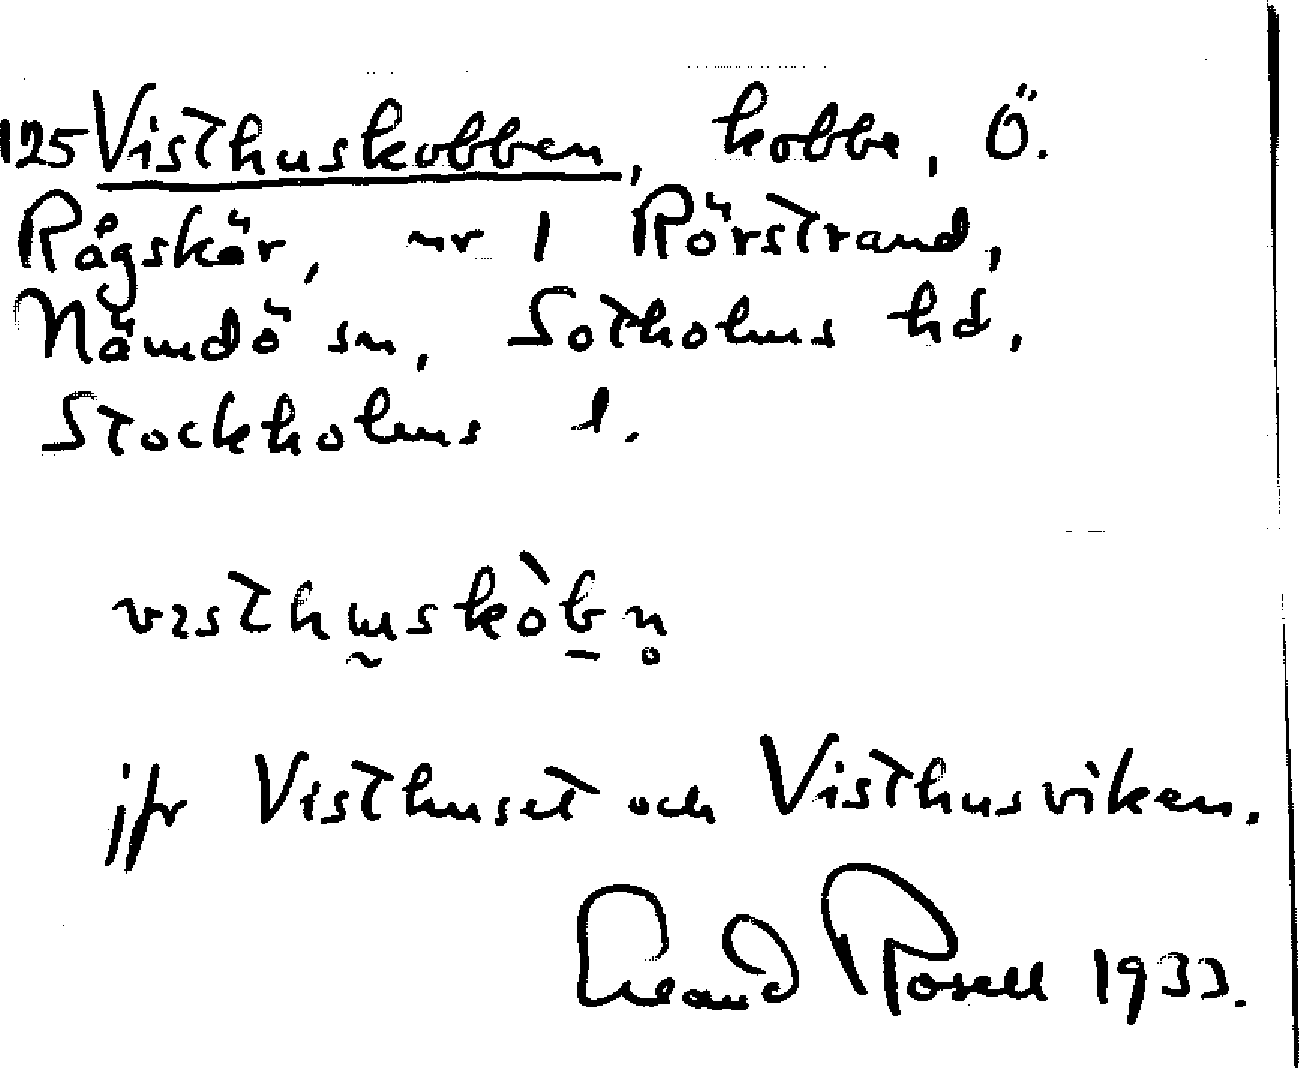 125 Visthuskobben, kobbe, Ö.
Rågskär, nr 1 Rörstrand,
Nämdö sn, Sotholms hd,
Stockholms l.
jfr Visthuset och Visthusviken.
Rosell 1933.